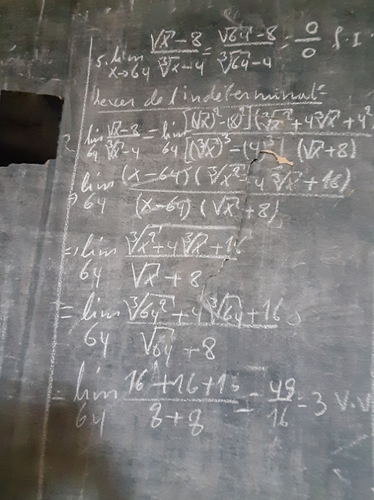 5. lim x→64 (√x - 8)/(∛x - 4) = (√64 - 8)/(∛64 - 4) = 0/0 f.I
Lever de l'indeterminat
lim 64 (√x - 8)/(∛x - 4) = lim 64 [(√x)² - (8)²](∛x² + 4∛x + 4²)/[(∛x)³ - (4)³](√x + 8)
lim 64 (x - 64)(∛x² + 4∛x + 16)/(x - 64)(√x + 8)
= lim 64 (∛x² + 4∛x + 16)/(√x + 8)
= lim 64 (∛64² + 4∛64 + 16)/(√64 + 8)
= lim 64 (16 + 16 + 16)/(8 + 8) = 48/16 = 3 V.V